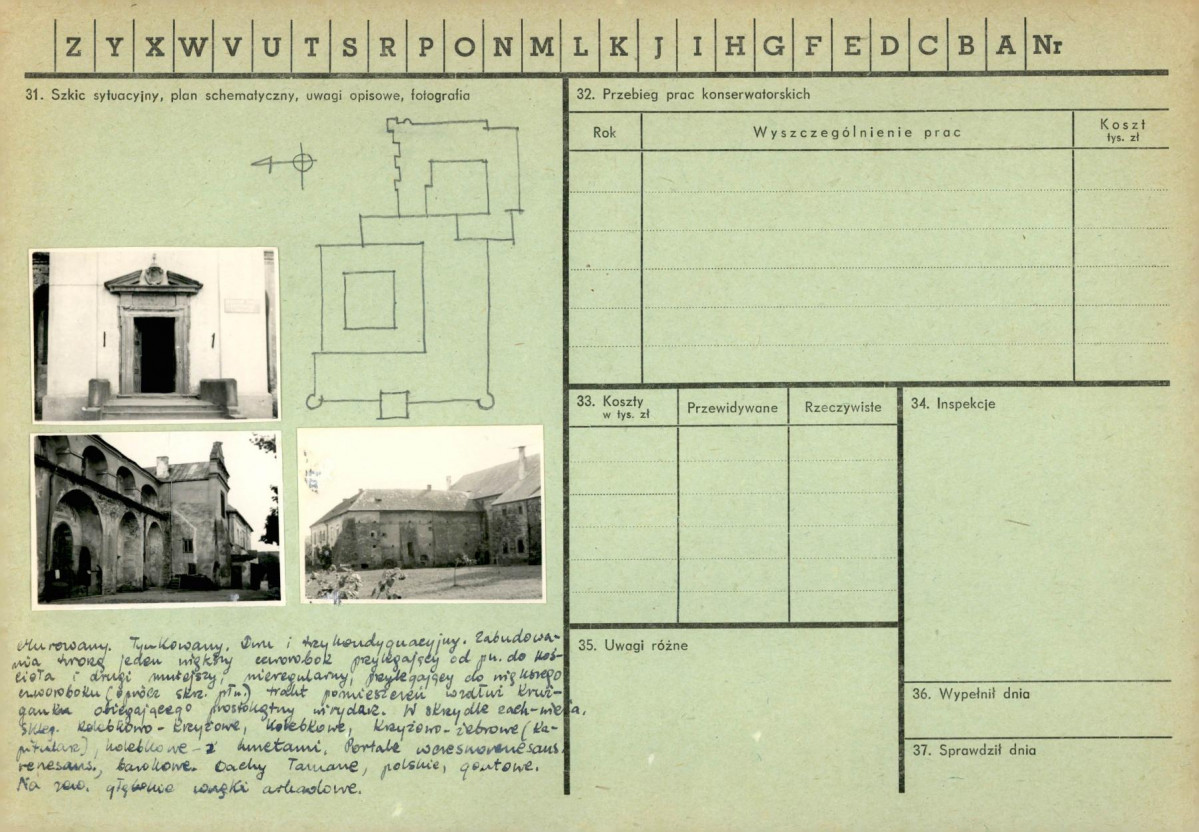 Z Y X W V U T S R P O N M L K J I H G F E D C B A Nr
31. Szkic sytuacyjny, plan schematyczny, uwagi opisowe, fotografia
32. Przebieg prac konserwatorskich
Rok
Wyszczególnienie prac
Koszt
tys. zł
33. Koszty
w tys. zł
Przewidywane
Rzeczywiste
34. Inspekcje
35. Uwagi różne
36. Wypełnił dnia
37. Sprawdził dnia
Murowany. Tynkowany. Dwu i trzykondygnacyjny. Zabudowa-
nia tworzą jeden większy czworobok przylegający od pn. do koś-
cioła i drugi mniejszy, nieregularny, przylegający do większego
czworoboku (oprócz skrz. płn.) trakt pomieszczeń wzdłuż kruż-
ganka obiegającego prostokątny wirydarz. W skrzydle zach-
sklep. kolebkowo-krzyżowe, kolebkowe, krzyżowo-żebrowe (ka-
pitularz), kolebkowe-z lunetami. Portale wczesnorenesans.
renesans., barokowe. Dachy łamane, polskie, gontowe.
Na zew. głębokie wnęki arkadowe.